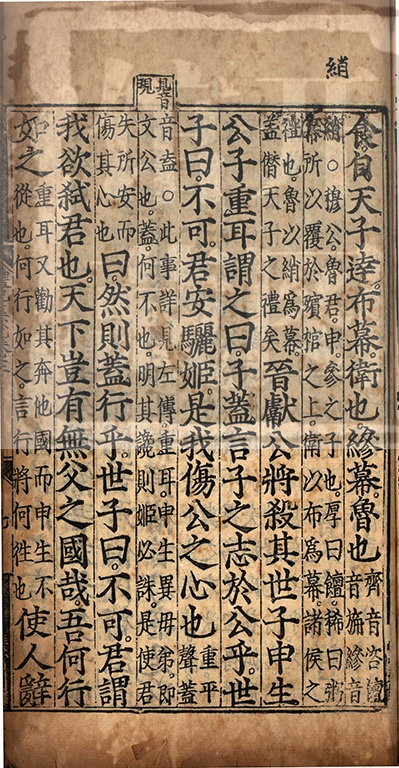 綃
見音
現
食自天子達。布幕。衛也。縿幕。魯也
齊音咨饘
音旃縿音
綃○穆公。魯君。申。參之子也。厚曰饘。稀曰粥
幕所以覆於殯棺之上。衛以布爲幕。諸侯之
禮也。魯以綃爲幕。
蓋僣天子之禮矣
晉獻公將殺其世子申生。
公子重耳謂之曰。子蓋言子之志於公乎。世
子曰。不可。君安驪姬。是我傷公之心也
重平
聲蓋
音盍○此事詳見左傳。重耳。申生異母弟。即
文公也。蓋。何不也。明其讒則姬必誅。是使君
失所安而
傷其心也
曰然則蓋行乎。世子曰。不可。君謂
我欲弑君也。天下豈有無父之國哉。吾何行
如之
重耳又勸其奔他國而申生不
從也。何行如之。言行將何徃也
使人辭